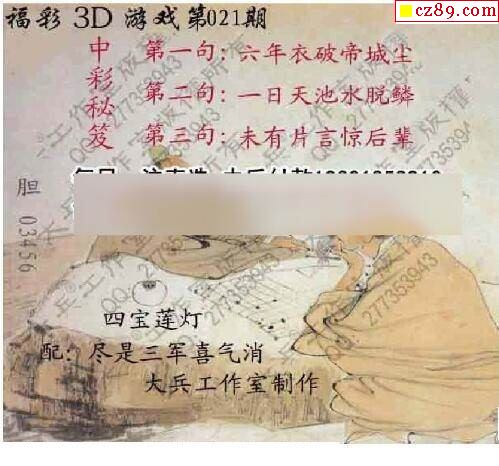 cz89.com
福彩 3D 游戏第021期
中彩秘笈
第一句:六年衣破帝城尘
第二句:一日天池水脱鳞
第三句:未有片言惊后辈
胆 03456
四宝莲灯
配:尽是三军喜气消
大兵工作室制作